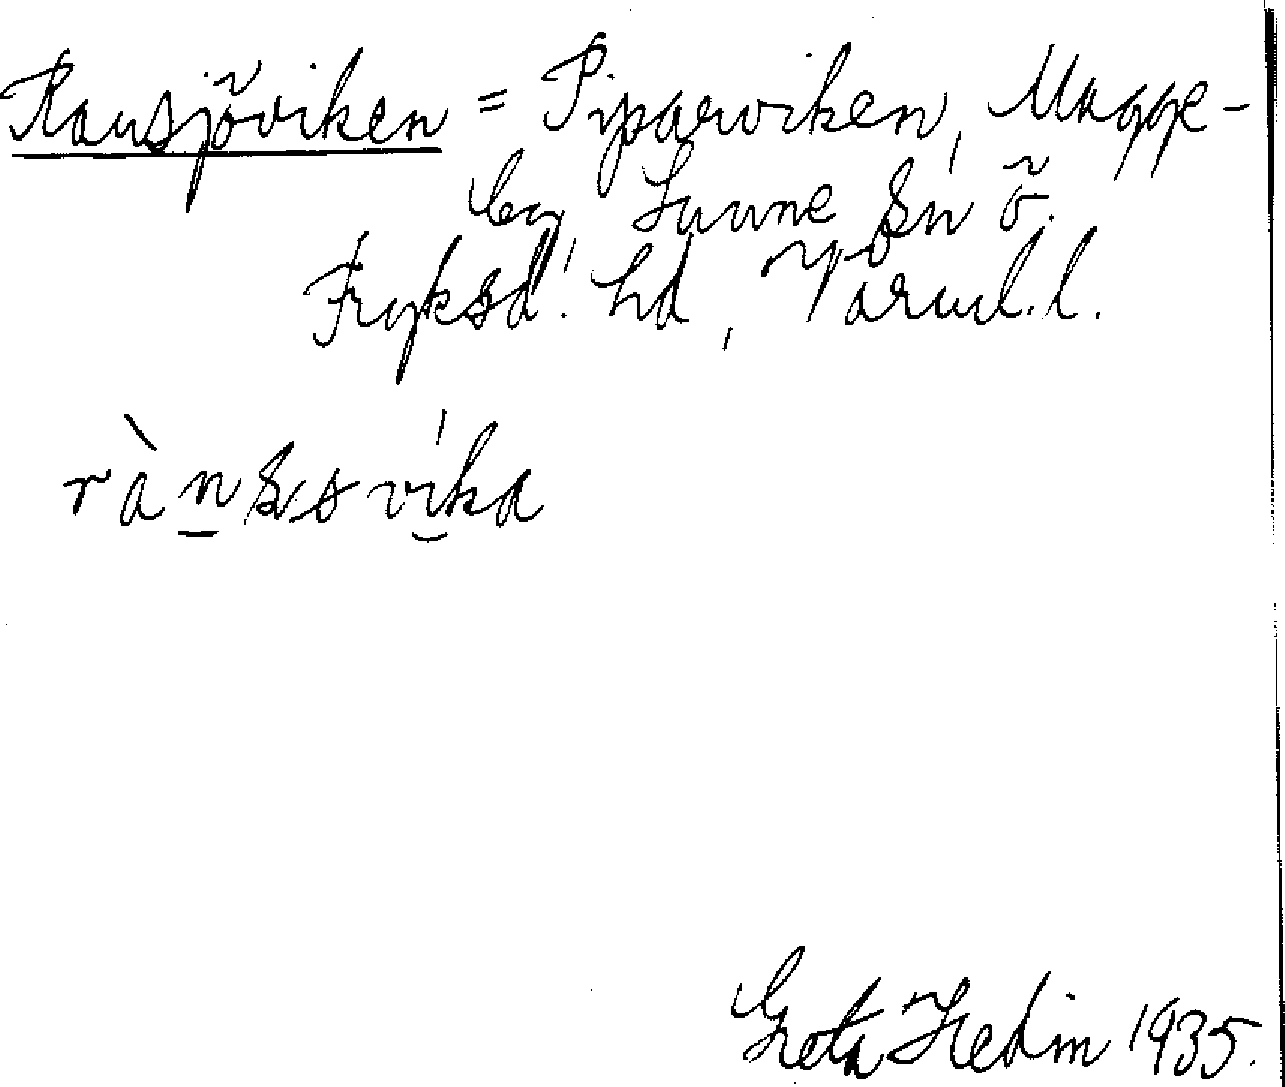 Ransjöviken = Piparviken, Magge-
by, Sunne sn ö.
Fryksd. hd, Värml. l.
rànsksvíka
Greta Hedin 1935.